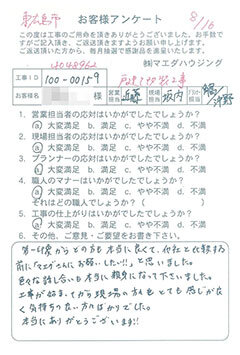 東広島市
お客様アンケート
8/16
この度は工事のご用命を頂きありがとうございました。お手数で
すがご記入頂き、ご返送頂きますようお願い申し上げます。
ご返送いただいた方から、毎月抽選で感謝品を進呈します。
㈱マエダハウジング
工事ID 100-0015-9
お客様名 営業担当 近藤 現場担当 坂内
1. 営業担当の応対はいかがでしたでしょうか？
ⓐ 大変満足 b. 満足 c. やや不満 d. 不満
2. 現場担当の応対はいかがでしたでしょうか？
ⓐ 大変満足 b. 満足 c. やや不満 d. 不満
3. プランナーの応対はいかがでしたでしょうか？
ⓐ 大変満足 b. 満足 c. やや不満 d. 不満
4. 職人のマナーはいかがでしたでしょうか？
ⓐ 大変満足 b. 満足 c. やや不満 d. 不満
それはどの職人でしょう（ ）
5. 工事の仕上がりはいかがでしたでしょうか？
ⓐ 大変満足 b. 満足 c. やや不満 d. 不満
6. その他、ご意見・ご要望をお書き下さい。
第一印象からとっても本当に良くて、他社と比較する
前に「マエダさんにお願いしたい!!」と思いました。
色々な話し合いも本当に親身になって下さいました。
工事が始まってから現場の方もとても感じがな
く気持ちのない方ばかりでした。
本当にありがとうございます!!